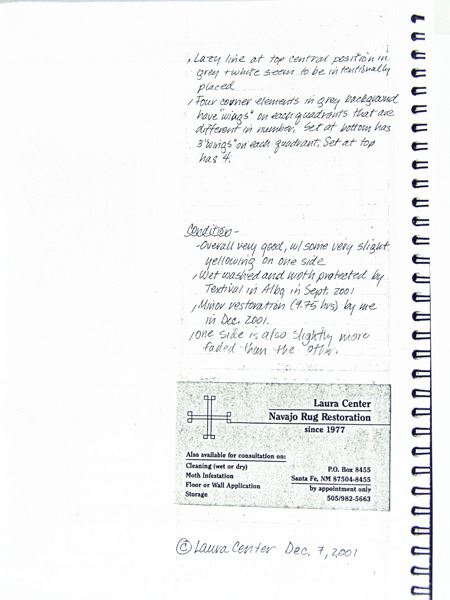 , Lazy line at top central position in
grey + white seem to be intentionally
placed
, Four corner elements in grey background
have "wings" on each quadrants that are
different in number. Set at bottom has
3 "wings" on each quadrant. Set at top
has 4.
Condition -
- Overall very good, w/ some very slight
yellowing on one side
, Wet washed and moth protected by
Textival in Albq in Sept. 2001
, Minor restoration (9.75 hrs) by me
in Dec. 2001.
, One side is also slightly more
faded than the other.
Laura Center
Navajo Rug Restoration
since 1977
Also available for consultation on:
Cleaning (wet or dry)
Moth Infestation
Floor or Wall Application
Storage
P.O. Box 8455
Santa Fe, NM 87504-8455
by appointment only
505/982-5663
© Laura Center Dec. 7, 2001